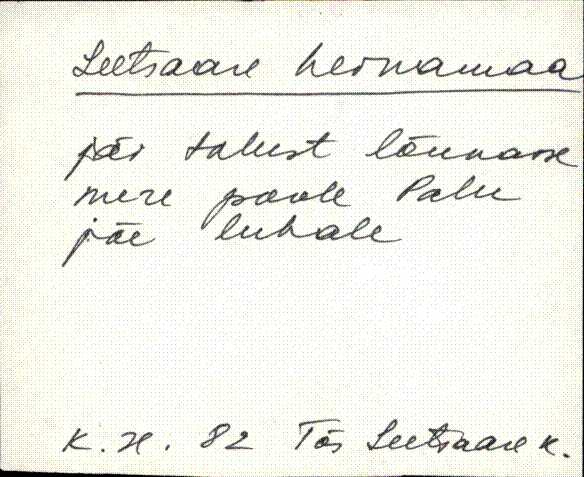 Leetsaare heinamaa
jäi talust lõunasse
mere poole Palu
jõe luhale
K. H. 82 Tõs Leetsaare k.